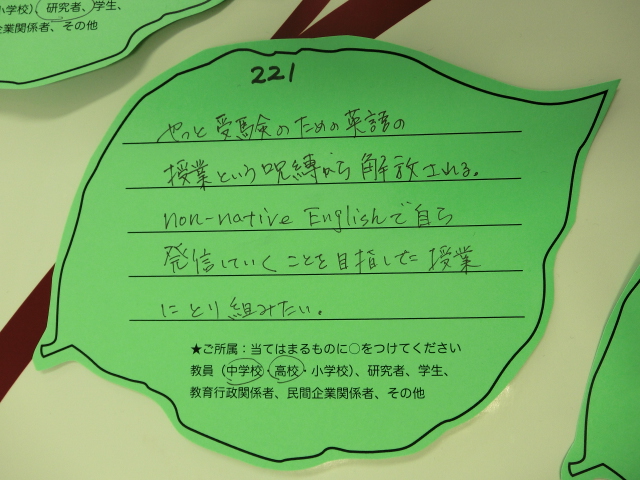 小学校)、研究者、学生、
企業関係者、その他
221
やっと受験のための英語の
授業という呪縛から解放される。
non-native Englishで自ら
発信していくことを目指した授業
にとり組みたい。
★ご所属：当てはまるものに○をつけてください
教員（中学校・高校・小学校)、研究者、学生、
教育行政関係者、民間企業関係者、その他